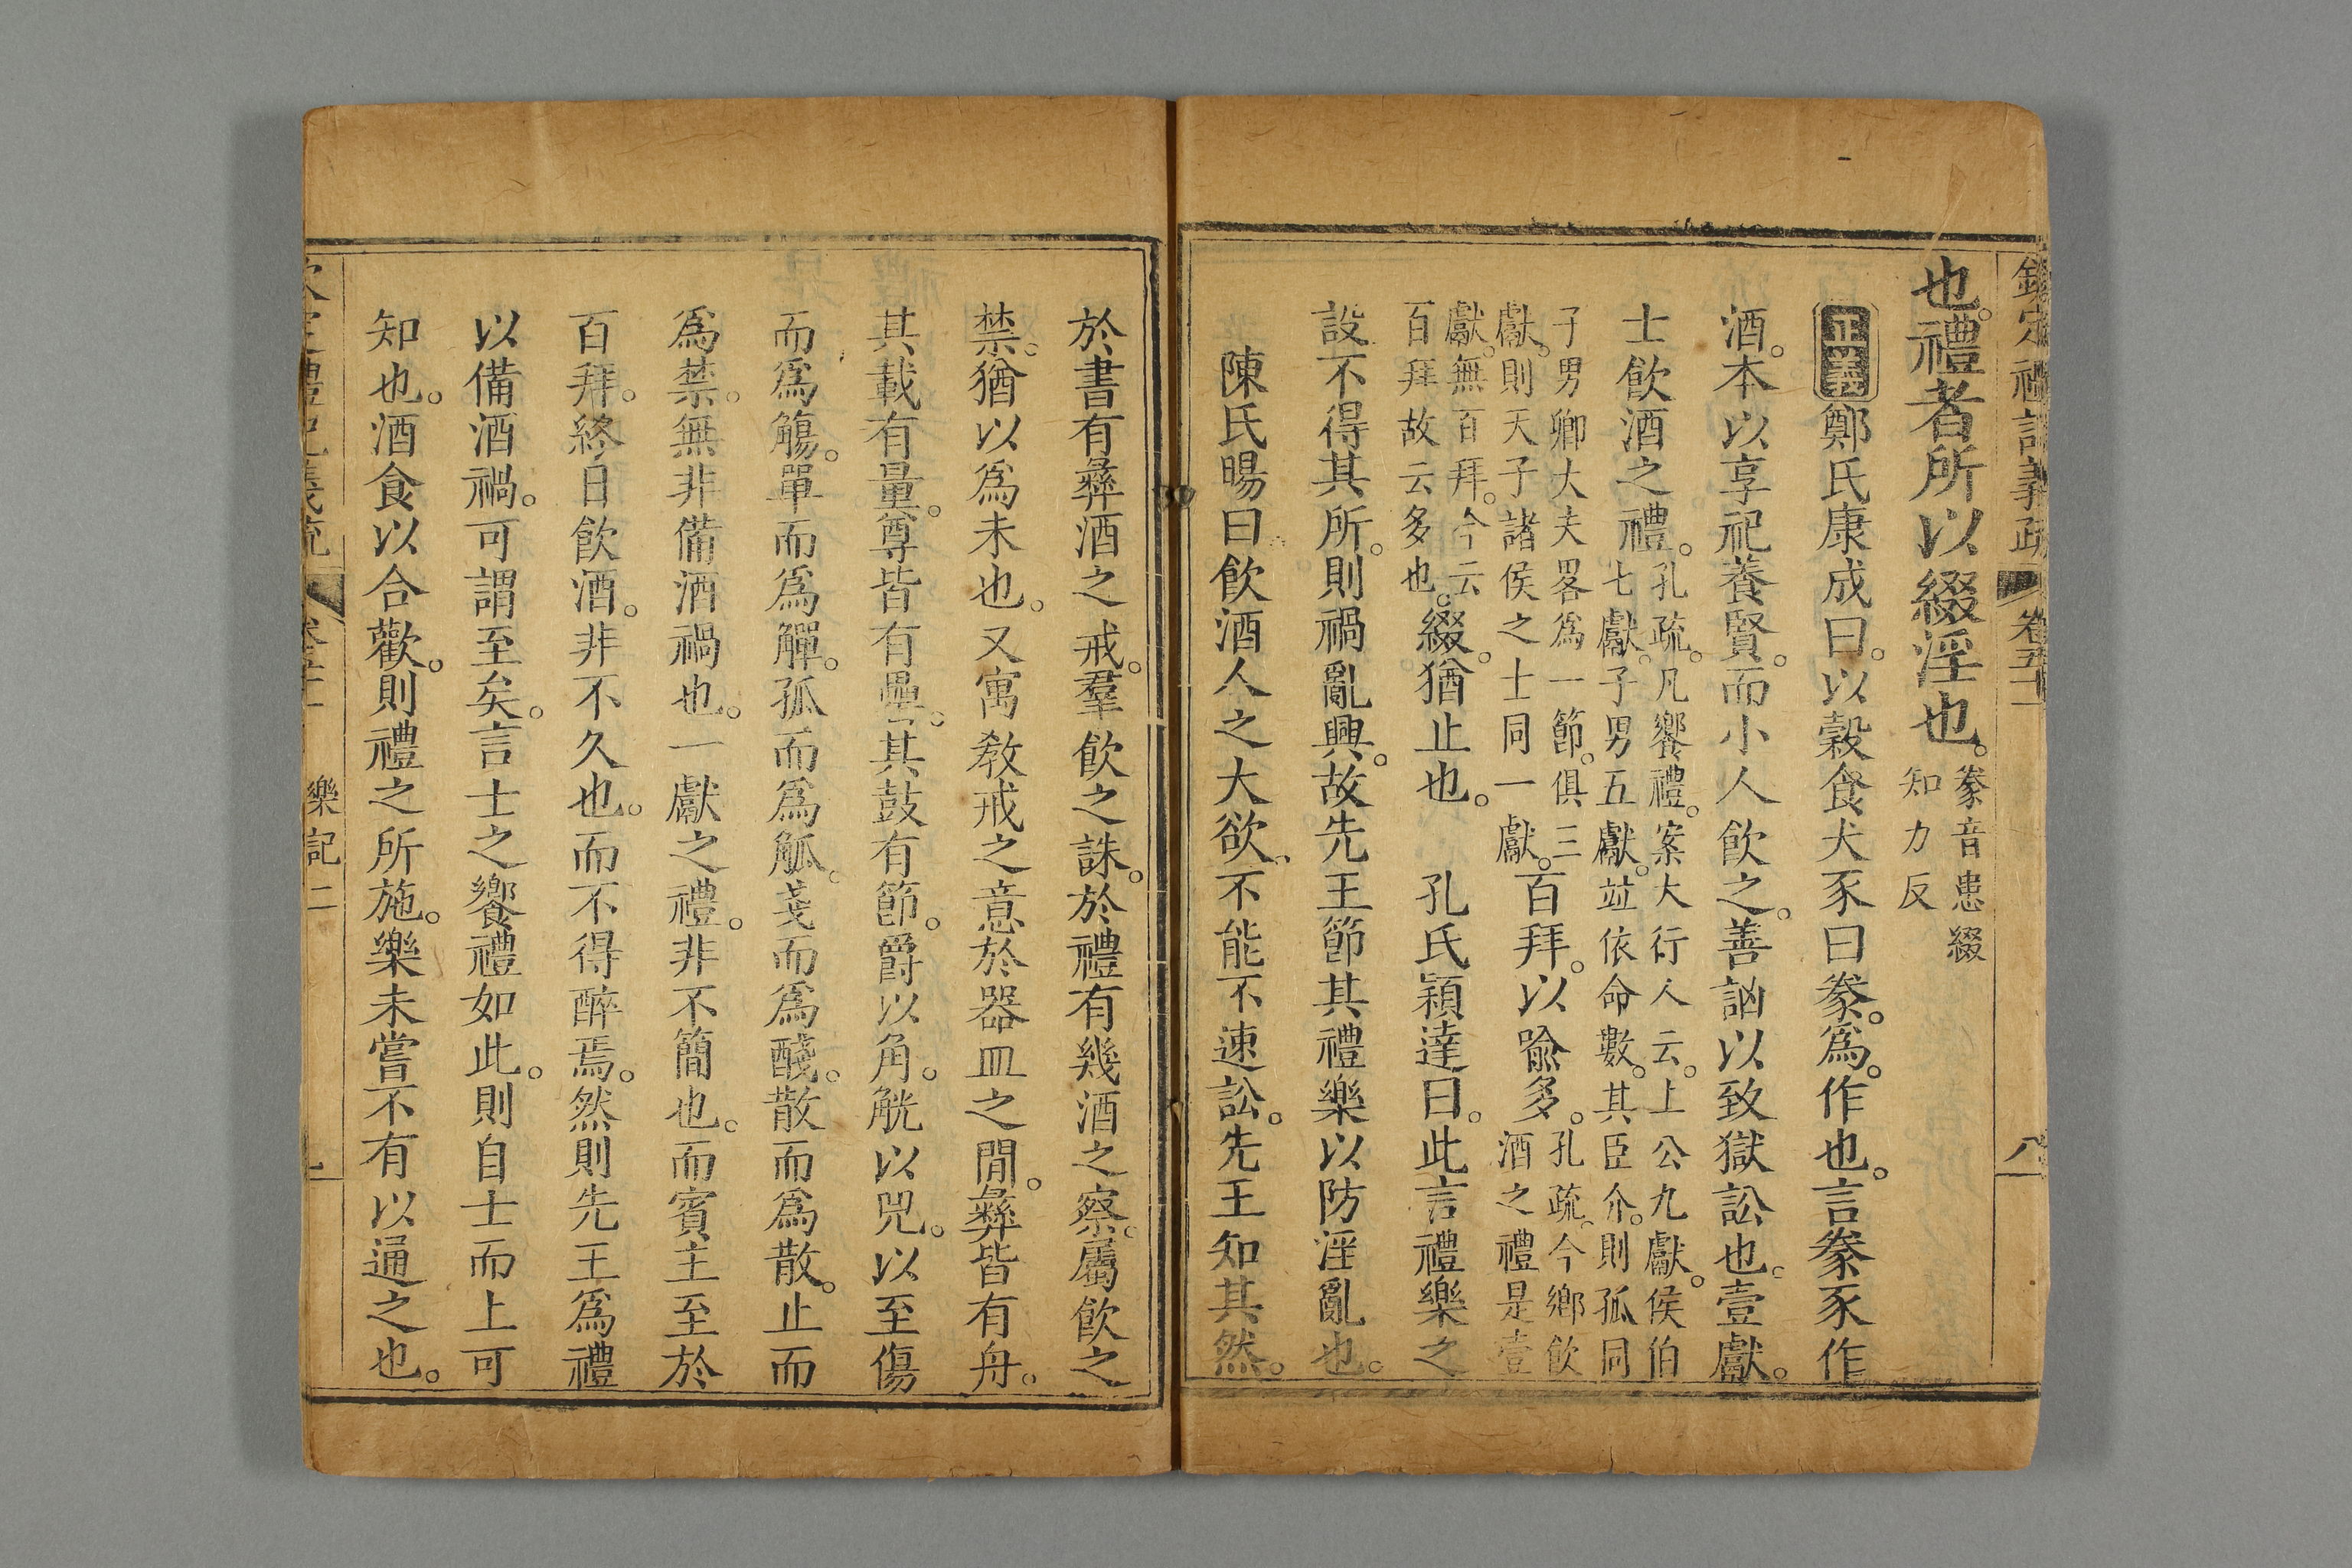 欽定禮記義疏 卷五十一 八
也。禮者所以綴淫也。豢音患綴知力反
正義鄭氏康成曰。以穀食犬豕曰豢。爲。作也。言豢豕作
酒。本以享祀養賢。而小人飲之。善訩以致獄訟也。壹獻。
士飲酒之禮。孔疏。凡饗禮。案大行人云。上公九獻。侯伯七獻。子男五獻。竝依命數。其臣介。則孤同
子男卿大夫畧爲一節。俱三獻。則天子諸侯之士同一獻。百拜。以喻多。孔疏。今鄉飲酒之禮是壹
獻。無百拜。今云百拜故云多也。綴。猶止也。 孔氏穎達曰。此言禮樂之
設不得其所。則禍亂興。故先王節其禮樂以防淫亂也。
陳氏暘曰飲酒人之大欲。不能不速訟。先王知其然。
於書有彝酒之戒。羣飲之誅。於禮有幾酒之察。屬飲之
禁。猶以爲未也。又寓教戒之意於器皿之閒。彝皆有舟。
其載有量。尊皆有罍。其鼓有節。爵以角。觥以兕。以至傷
而爲觴。單而爲觶。孤而爲觚。戔而爲醆。散而爲散。止而
爲禁。無非備酒禍也。一獻之禮。非不簡也。而賓主至於
百拜。終日飲酒。非不久也。而不得醉焉。然則先王爲禮
以備酒禍。可謂至矣。言士之饗禮如此。則自士而上可
知也。酒食以合歡。則禮之所施。樂未嘗不有以通之也。
定禮記義疏 樂記二